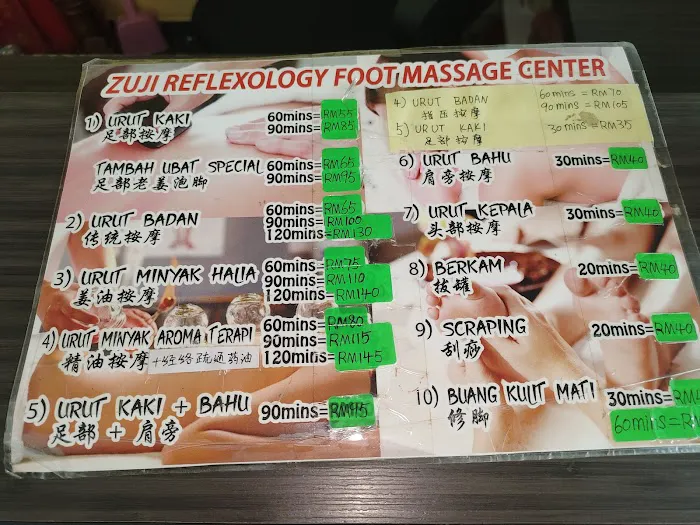 ZUJI REFLEXOLOGY FOOT MASSAGE CENTER
1) URUT KAKI 60mins=RM55
足部按摩 90mins=RM85
TAMBAH UBAT SPECIAL 60mins=RM65
足部老姜泡脚 90mins=RM95
2) URUT BADAN 60mins=RM65
传统按摩 90mins=RM100
120mins=RM130
3) URUT MINYAK HALIA 60mins=RM75
姜油按摩 90mins=RM110
120mins=RM140
4) URUT MINYAK AROMA TERAPI 60mins=RM80
精油按摩 +经络疏通药油 90mins=RM115
120mins=RM145
5) URUT KAKI + BAHU 90mins=
足部+肩旁
4) URUT BADAN 60mins=RM70
指压按摩 90mins=RM105
5) URUT KAKI 30mins=RM35
足部按摩
6) URUT BAHU 30mins=RM40
肩旁按摩
7) URUT KEPALA 30mins=RM40
头部按摩
8) BERKAM 20mins=RM40
拔罐
9) SCRAPING 20mins=RM40
刮痧
10) BUANG KULIT MATI 30mins=
修脚 60mins=